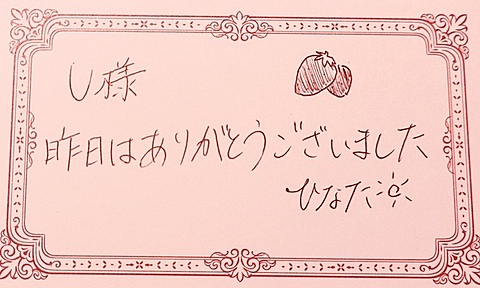 U様
昨日はありがとうございました
ひなた